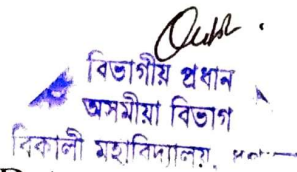 বিভাগীয় প্ৰধান
অসমীয়া বিভাগ
বিকালী মহাবিদ্যালয়,